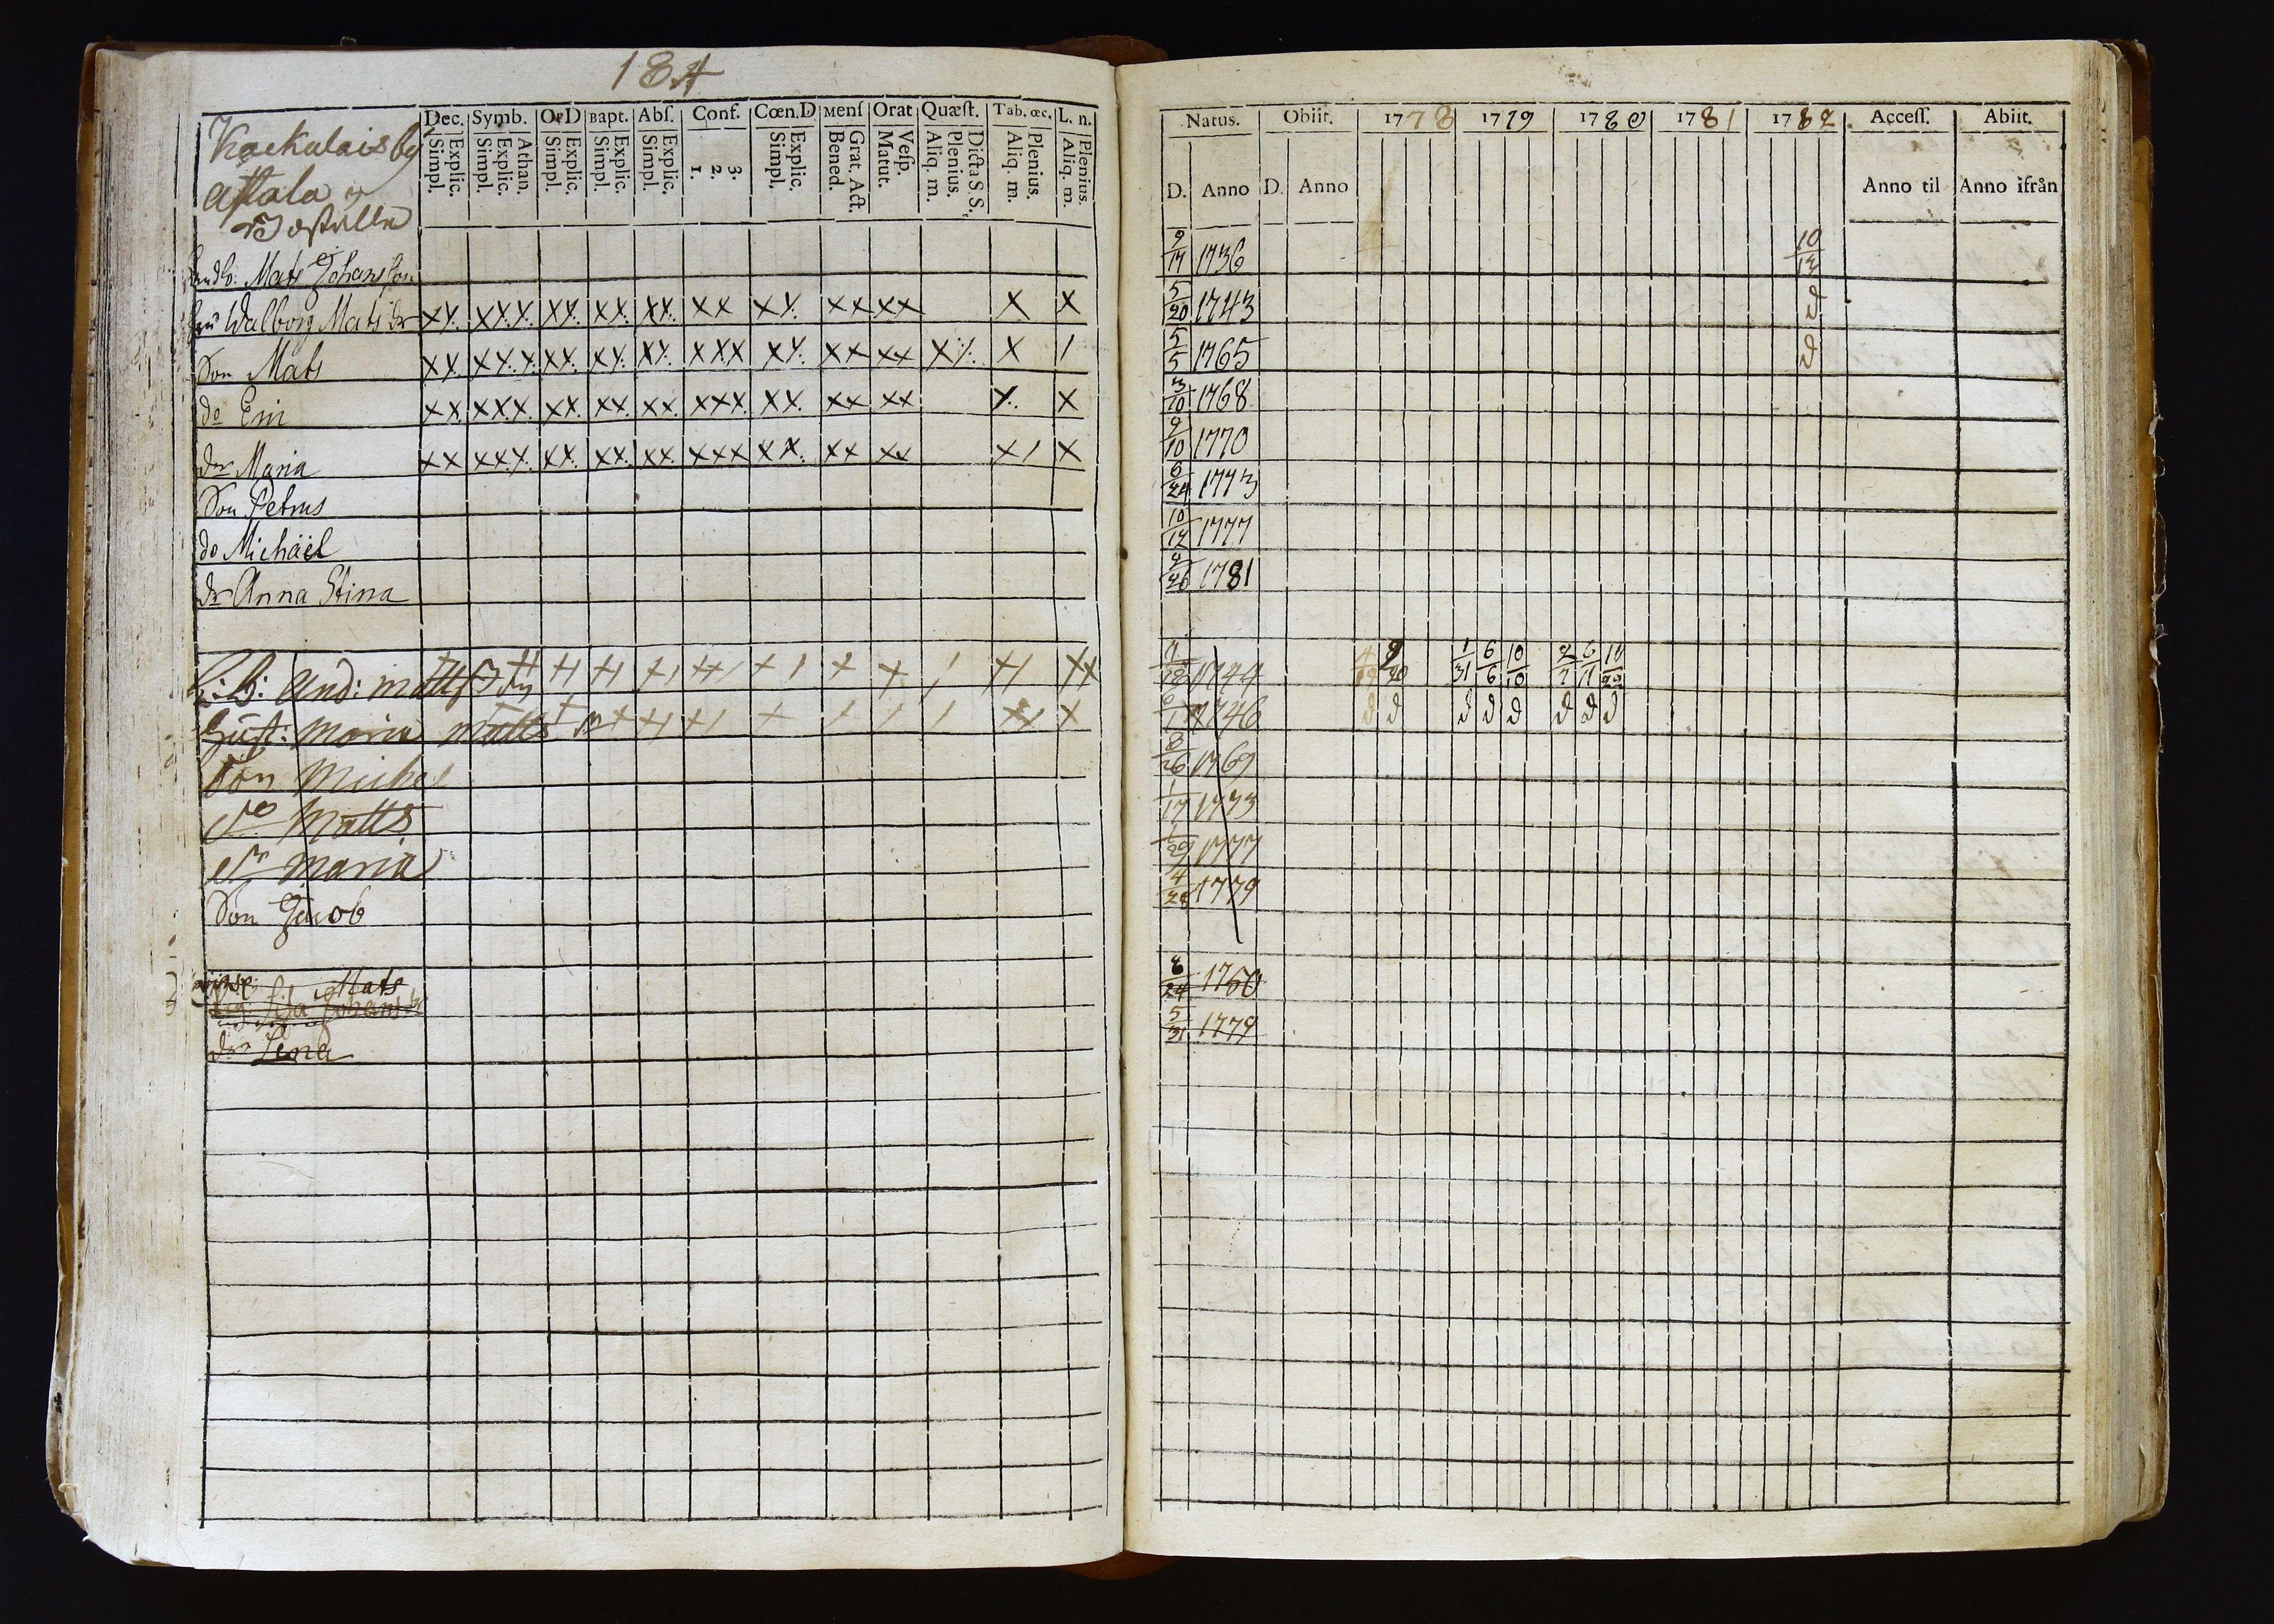 184
Dec. Symb. Or D Bapt. Abſ. Conf. Cœn.D Menſ Orat Quæſt. Tab. œc. L. n.
Explic. Simpl. Athan. Explic. Simpl. Explic. Simpl. Explic. Simpl. Explic. Simpl. 3. 2. 1. Explic. Simpl. Grat. Act. Bened. Veſp. Matut. Dicta S S. Plenius. Aliq. m. Plenius. Aliq. m. Plenius. Aliq. m.
Kackulais by
Attala
Mats Johansson
Walborg Mats dr xx xxx xx xx xx xx xx xx xx x x
Son Mats xx xxx xx xx xx xxx xx xx xx x/ x /
do Eric xx xxx xx xx xx xxx xx xx xx x x
dr Maria xx xxx xx xx xx xxx xx xx xx x/ x
Son Petrus
do Michaël
dr Anna Stina
And: Matts
Hust: Maria Matts
Son Michel
do Matts
dr Maria
Son Jacob
Mats
Lisa Johans dr
dr Lena
Natus. Obiit. 1778 1779 1780 1781 1782 Acceſſ. Abiit.
D. Anno D. Anno Anno til Anno ifrån
9/17 1736 10/13
5/20 1743 d
5/5 1765 d
3/10 1768
9/10 1770
6/24 1773
10/12 1777
1781
1744 1/31 6/6 10/10
1746 d d d d d d d d
8/26 1769
1/17 1773
1/29 1777
4/28 1779
8/24 1760
5/31 1779